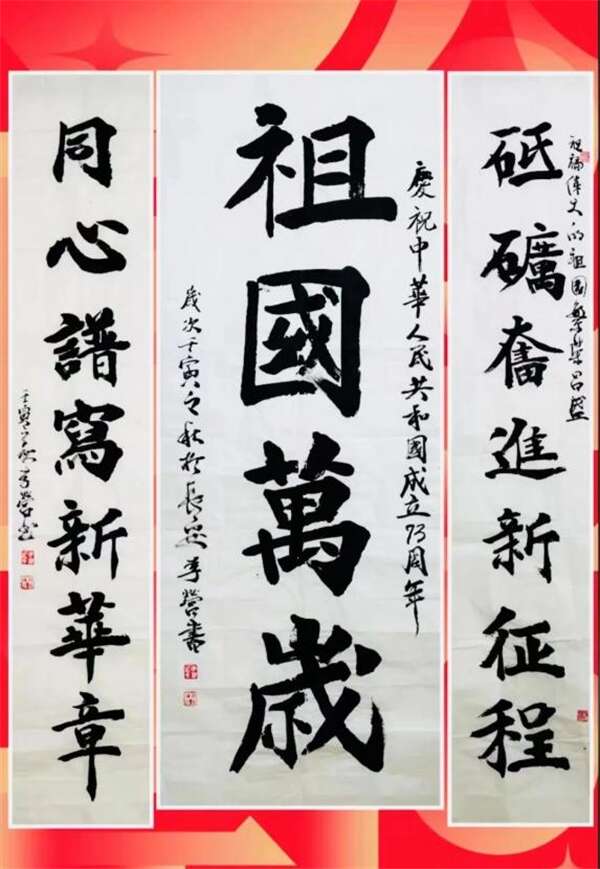 祝福偉大的祖國繁榮昌盛
砥礪奮進新征程
慶祝中華人民共和國成立73周年
祖國萬歲
歲次壬寅之秋於長安李營書
同心譜寫新華章
壬寅之秋李營書